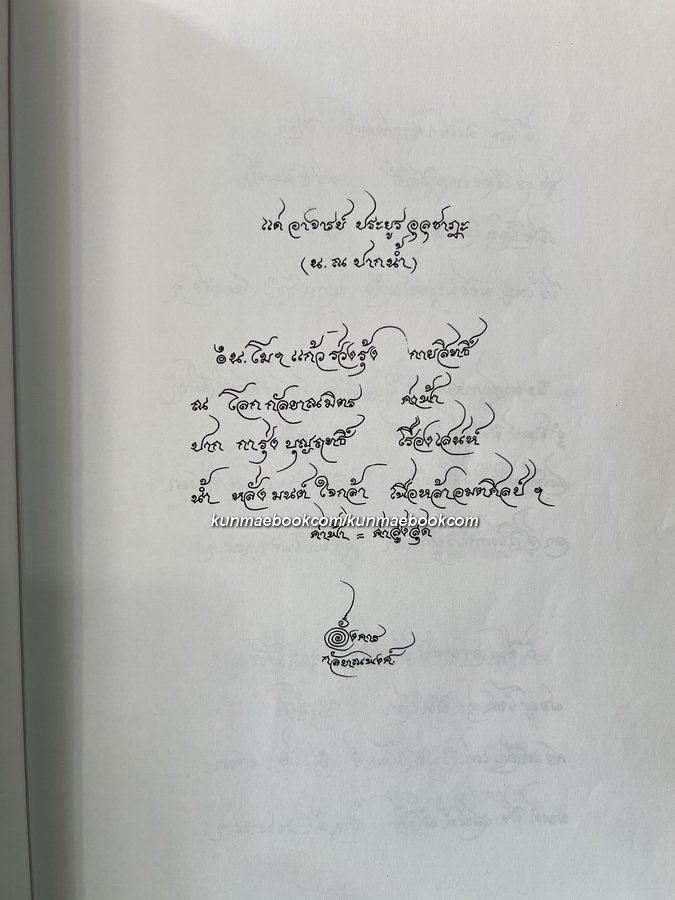 แด่ อาจารย์ ประยูร อุลุชาฎะ
(น. ณ ปากน้ำ)
น. โมฯ แก้ว รุ่งรุ้ง กายสิทธิ์
ณ โลก กัลยาณมิตร ค่าฟ้า
ปาก การุ่ง บุญฤทธิ์ เรืองเสน่ห์
น้ำ หลั่ง มนต์ ใจกล้า เพื่อหล้าอมตศิลป์ ฯ
kunmaebook.com/kunmaebookcom
ค่าฟ้า = ค่าสูงสุด
อังคาร
กัลยาณพงศ์